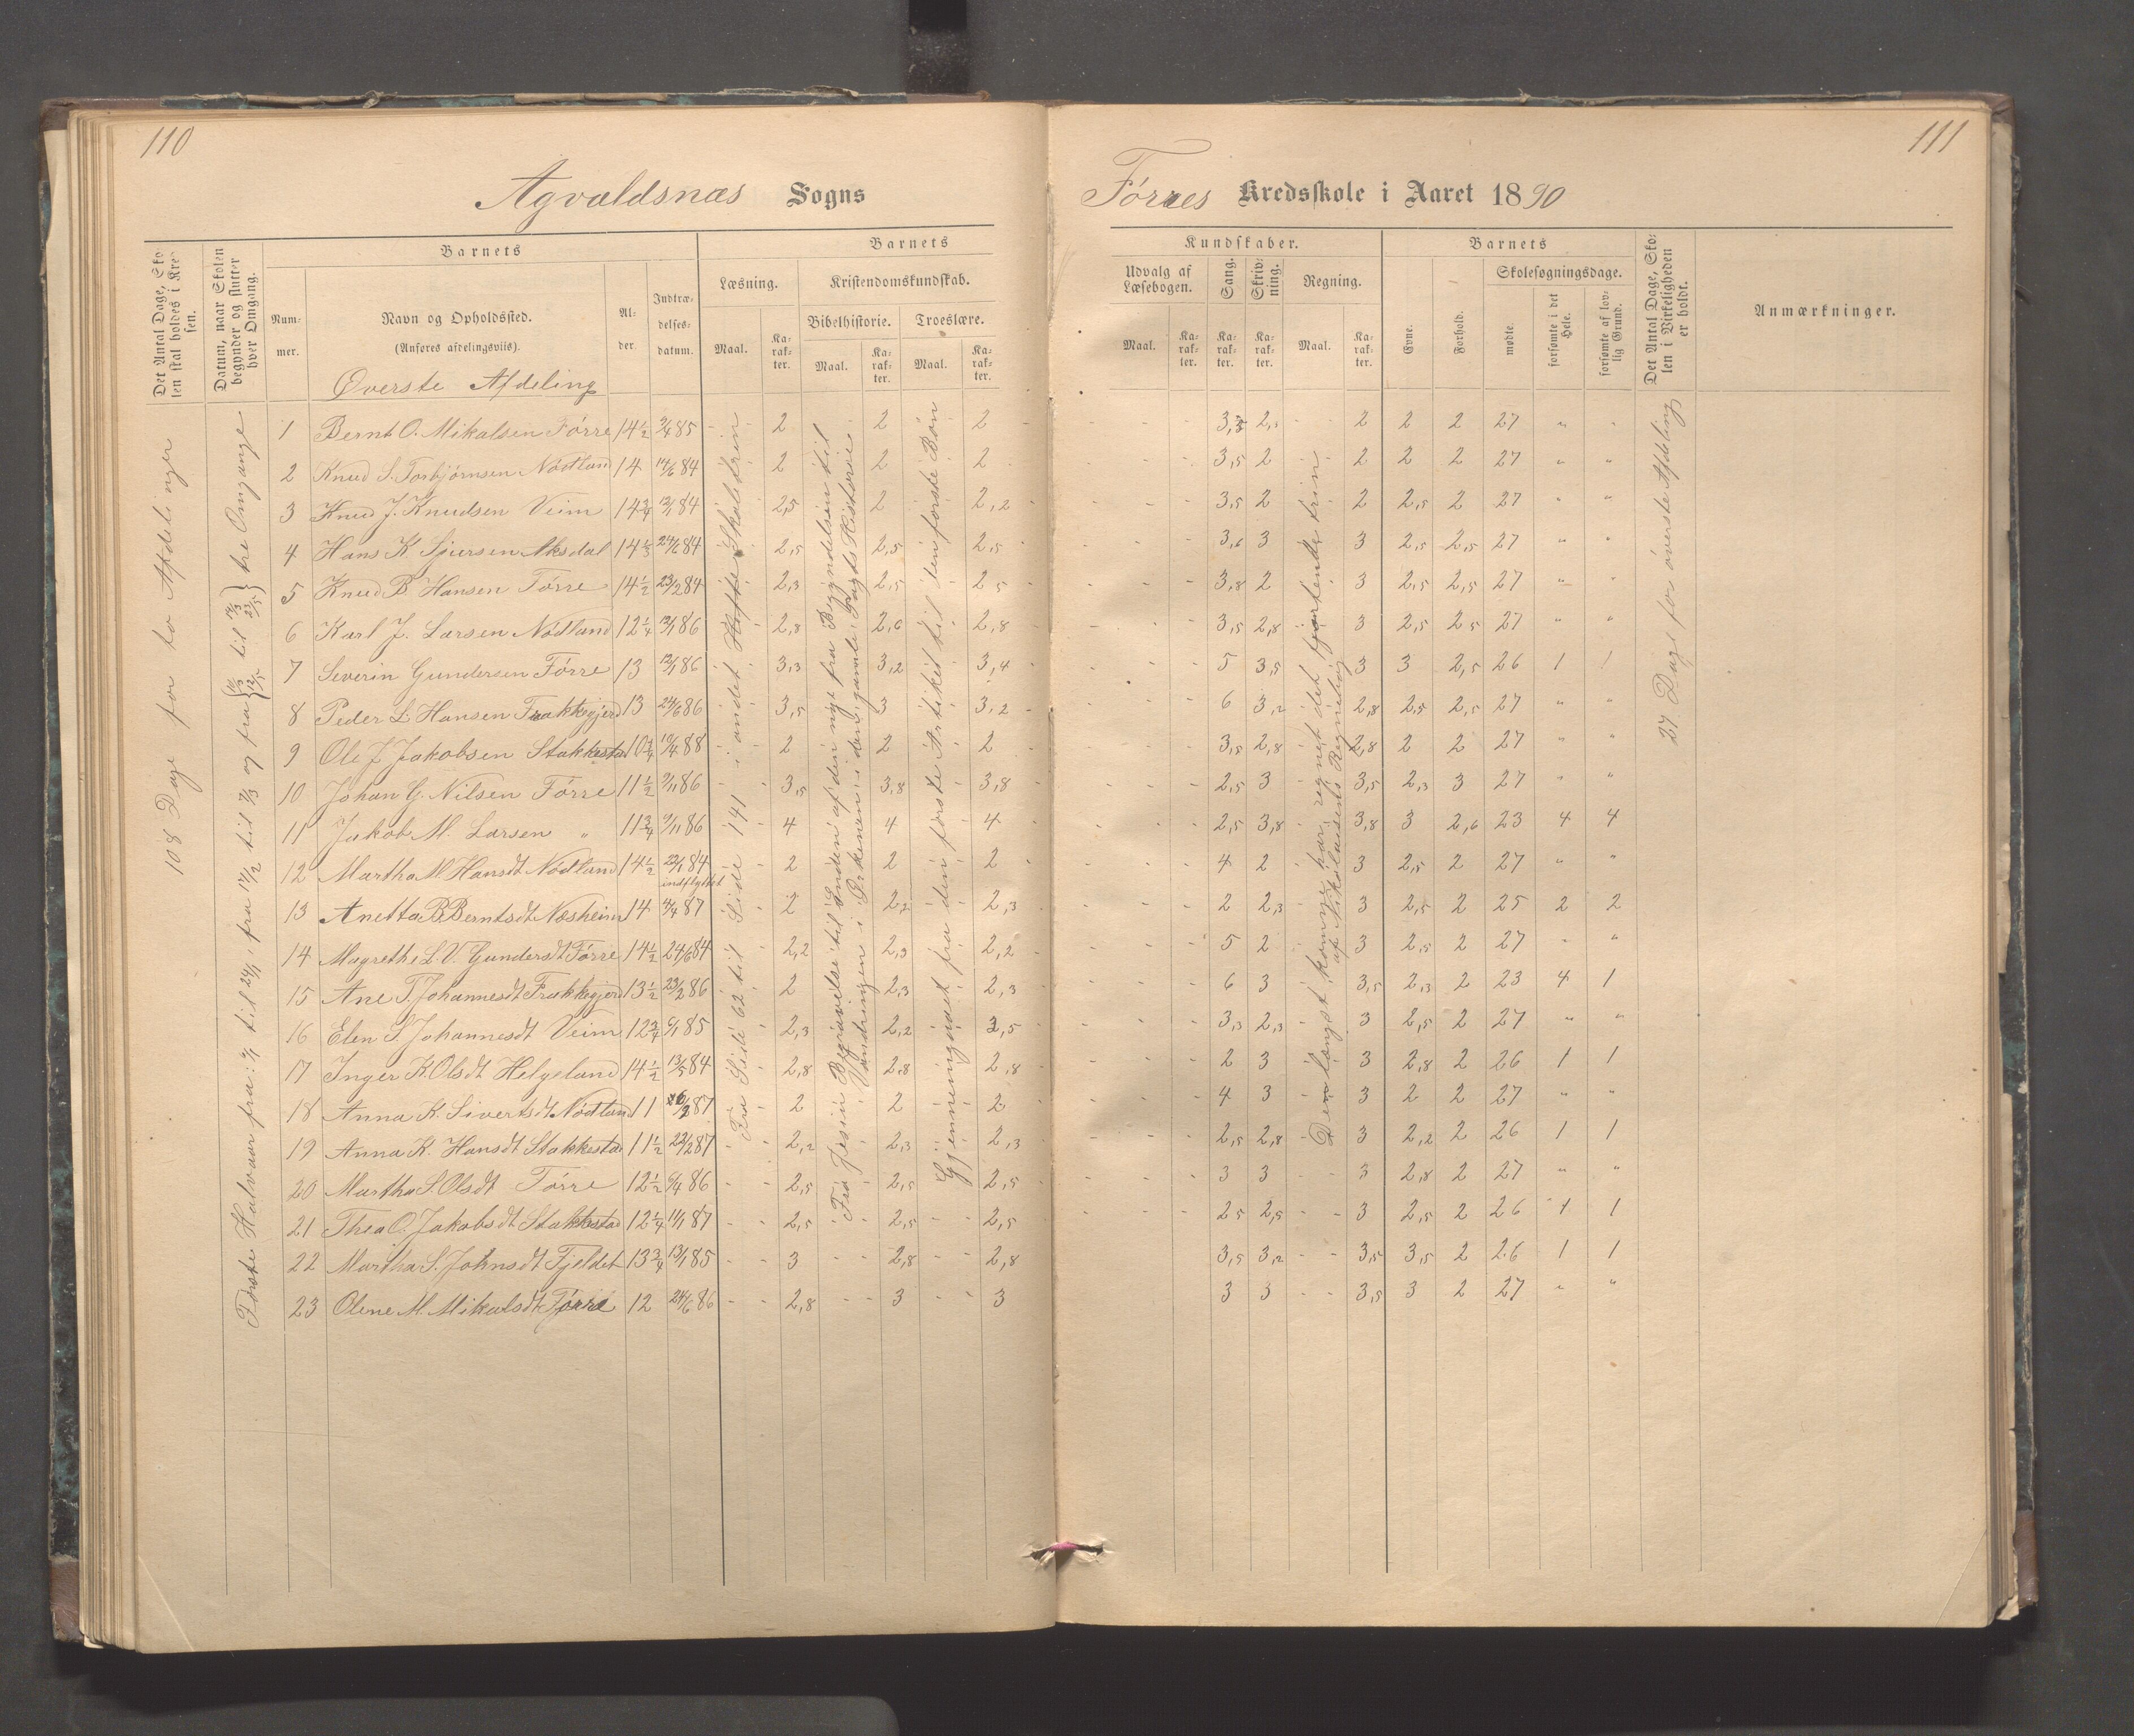 110
111
Agvaldsnæs Sogns
Førres Kredsskole i Aaret 1890
Det Antal Dage, Sko-
len skal holdes i Kred-
sen.
Datum, naar Skolen
begynder og slutter
hver Omgang.
Barnets
Num-
mer.
Navn og Opholdssted.
(Anføres afdelingsviis).
Al-
der.
Indtræ-
delses-
datum.
Barnets
Læsning.
Maal.
Ka-
rak-
ter.
Kristendomskundskab.
Bibelhistorie.
Maal.
Ka-
rak-
ter.
Troeslære.
Maal.
Ka-
rak-
ter.
Kundskaber.
Udvalg af
Læsebogen.
Maal.
Ka-
rak-
ter.
Sang.
Ka-
rak-
ter.
Skriv-
ning.
Ka-
rak-
ter.
Regning.
Maal.
Ka-
rak-
ter.
Barnets
Evne.
Forhold.
Skolesøgningsdage.
mødte.
forsømte i det
Hele.
forsømte af lov-
lig Grund.
Det Antal Dage, Sko-
len i Virkeligheden
er holdt.
Anmærkninger.
Øverste Afdeling
108 Dage for to Afdelinger
Første Halvaar fra: 7/1 til 24/1 fra 17/2 til 7/3 og fra til tre Omgange
Fra Side 62 til Side 141 i andet Hefte Skoletrin
Fra Jesu Begravelse til Enden af den nye fra Begyndelsen til
Vandringen i Ørkenen i den gamle Pagts Historie
Gjennemgaaet fra den første Artikel til den første Bøn
Den længst komne har regnet det fjortende trin
af Nikolaisens Regnebog
27 Dage for øverste Afdeling
1 Bernt O. Mikalsen Førre 14 1/2 2/4 85 2 2 2 3,8 2,5 2 2 2 27 " "
2 Knud S. Torbjørnsen Nødland 14 17/6 84 2 2 2 3,5 2 2 2 2 27 " "
3 Knud J. Knudsen Veim 14 3/4 12/1 84 2,5 2 2,2 3,5 2 2 2,5 2 27 " "
4 Hans K Sjursen Aksdal 14 1/3 24/6 84 2,5 2,5 2,5 3,6 3 3 2,5 2,5 27 " "
5 Knud B Hansen Førre 14 1/2 23/2 84 2,3 2,5 2 5 3,8 2 3 2,5 2,5 27 " "
6 Karl J. Larsen Nødland 12 1/4 12/1 86 2,8 2,6 2,8 3,5 2,8 3 2,5 2 5 27 " "
7 Severin Gundersen Førre 13 12/1 86 3,3 3,2 3,4 5 3,5 3 3 2,5 26 1 1
8 Peder L Hansen Frakkegjerd 13 24/6 86 3,5 3 3,2 6 3,2 2,8 2,5 2,5 27 " "
9 Ole J Jakobsen Stakkestad 10 3/4 10/4 88 2 2 2 3,8 2,8 2,8 2 2 27 " "
10 Johan G. Nilsen Førre 11 1/2 9/11 86 3,5 3,8 3,8 2,5 3 3,5 2,3 3 27 " "
11 Jakob M. Larsen " 11 3/4 9/11 86 4 4 4 2,5 3,8 3,8 3 2,6 23 4 4
12 Martha M. Hansdt Nødland 14 1/2 22/1 84 2 2 2 4 2 3 2,5 2 27 " "
indflyttet
13 Anetta B. Berntsdt Næsheim 14 4/4 87 2 2,2 2,3 2 2,3 3 2,5 2 25 2 2
14 Magrethe L.V. Gundersdt Førre 14 1/2 24/6 84 2,2 2,3 2,2 5 2 3 2,5 2 27 " "
15 Ane T. Johannesdt Frakkegjerd 13 1/2 23/2 86 2 2,3 2,3 6 3 3,5 2,3 2 23 4 1
16 Elen S. Johannesdt Veim 12 3/4 9/1 85 2,3 2,2 2,5 3,3 2,3 3 2,5 2 27 " "
17 Inger K. Olsdt Helgeland 14 1/2 13/5 84 2,8 2,8 2,8 2 3 3 2,8 2 26 1 1
18 Anna K. Sivertsdt Nødland 11 26/2 87 2 2 2 4 3 3 2 2 27 " "
19 Anna K. Hansdt Stakkestad 11 1/2 23/2 87 2,2 2,3 2,3 2,5 2,8 3 2,2 2 26 1 1
20 Martha S. Olsdt Førre 12 1/2 9/4 86 2,5 2,5 2,5 3 3 3 2,8 2 27 " "
21 Thea O. Jakobsdt Stakkestad 12 1/4 14/1 87 2,5 2,5 2,5 2 5 2,5 3 2,5 2 26 1 1
22 Martha S. Johnsdt Fjeldet 13 3/4 13/1 85 3 2,8 2,8 3,5 3,2 3,5 3,5 2 26 1 1
23 Olene M. Mikalsdt Førre 12 24/6 86 2,8 3 3 3 3 3,5 3 2 27 " "